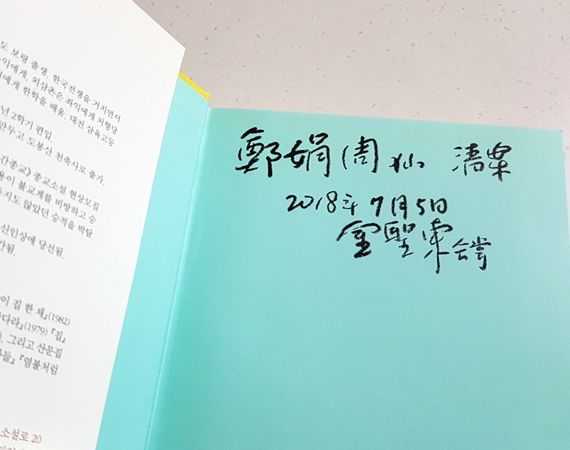 보령 출생. 한국전쟁을 거치면서
에게, 외삼촌은 좌익에게 처형당
에게 한학을 배움. 대전 삼육고등
년 2학기 편입
만두고 도봉산 천축사로 출가.
간종교》 종교소설 현상모집
용이 불교계를 비방하고 승
지도 않았던 승적을 박탈
신인상에 당선됨.
간됨.
이 집 한 채』(1982)
다라』(1979) 『집』
, 그리고 산문집
들』 『염불처럼
소설로 20
鄭娟周 仙 清栗
2018年 7月 5日
金聖東